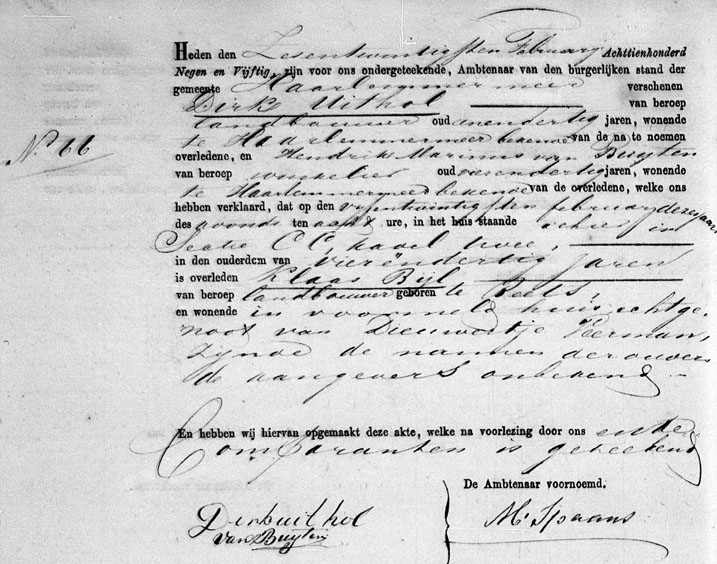 Heden den Zesentwintigsten February Achttienhonderd
Negen en Vijftig, zijn voor ons ondergeteekende, Ambtenaar van den burgerlijken stand der
gemeente Haarlemmermeer verschenen
Dirk Uithol van beroep
landbouwer oud eenendertig jaren, wonende
te Haarlemmermeer bekende van de na te noemen
No 66
overledene, en Hendrik Marinus van Buyten
van beroep winkelier oud vierendertig jaren, wonende
te Haarlemmermeer bekende van de overledene, welke ons
hebben verklaard, dat op den vijfentwintigsten february dezes jaars
des avonds ten acht ure, in het huis staande alhier in
Sectie CC, kavel twee,
in den ouderdom van vierëndertig jaren
is overleden Klaas Byl
van beroep landbouwer geboren te Beets,
en wonende in voormeld huis, echtge-
noot van Dieuwertje Veerman,
zynde de namen der ouders
de aangevers onbekend
En hebben wij hiervan opgemaakt deze akte, welke na voorlezing door ons en de
Comparanten is geteekend
De Ambtenaar voornoemd.
Dirkuithol
van Buyten
M. Spaans